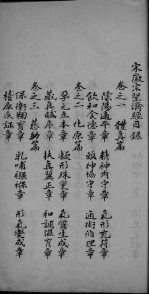 宋徽宗聖濟經目錄
卷之一 體真篇
陰陽適平章 精神內守章 氣形充符章
飲和食德章 頤神協章 通術循理章
卷之二 化原篇
孕元立本章 凝形殊稟章 氣質生成章
藏真賦序章 扶真翼正章 和調滋育章
卷之三 慈幼篇
保衛鞠育章 乳哺襁褓章 形氣變成章
稽原疾証章